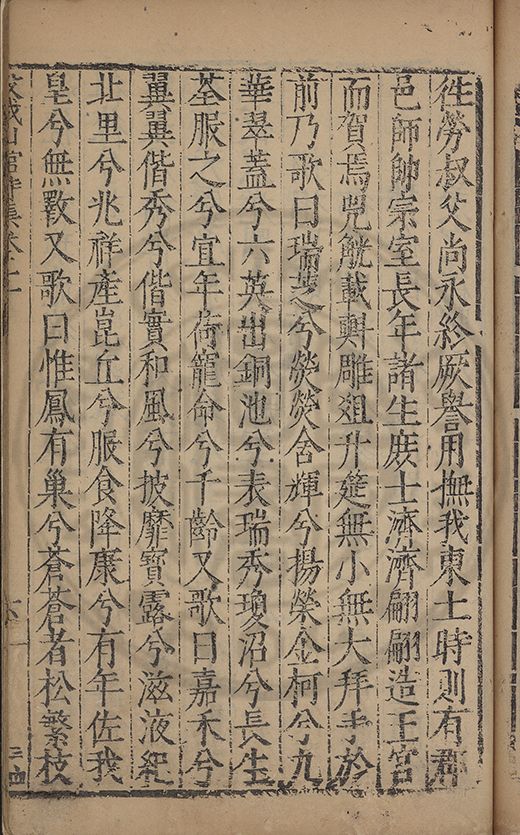 徃勞叔父尚永終厥譽用撫我東土時則有郡
邑師帥宗室長年諸生庻士濟濟翩翩造王宫
而賀焉兕觥載斢雕爼升筵無小無大拜手於
前乃歌曰瑞芝兮熒熒含輝兮揚榮金柯兮九
華翠蓋兮六英出銅池兮表瑞秀瓊沼兮長生
荃服之兮宜年荷寵命兮千齡又歌曰嘉禾兮
翼翼偕秀兮偕實和風兮披靡寳露兮滋液紀
北里兮兆祥產崑丘兮服食降康兮有年佐我
皇兮無斁又歌曰惟鳳有巢兮蒼蒼者松繁枝
山舘詩集卷十